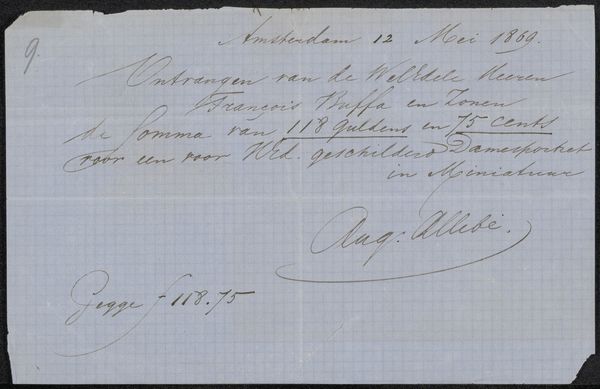 9.
Amsterdam 12 Mei 1869.
Ontvangen van de WelEdele Heeren
François Buffa en Zonen
de Somma van 118 guldens en 75 cents
voor een voor UEd. geschilderd Damesportret
in Miniatuur
Aug: Allebé.
Zegge f 118.75